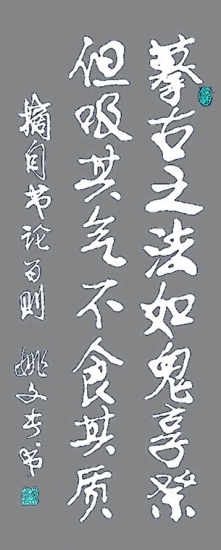 摹古之法如鬼享祭
但吸其气不食其质
摘句书论百则 姚文奎书